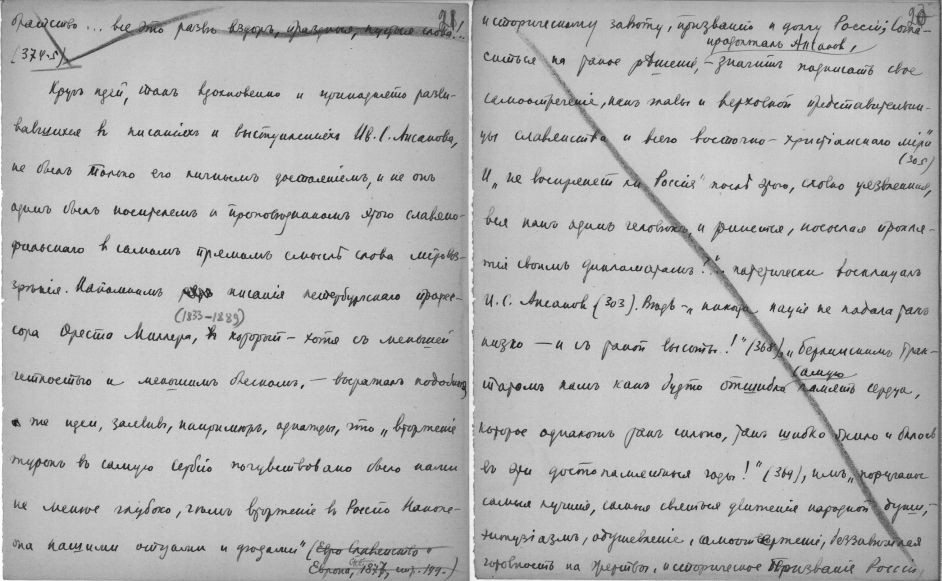 21
братство ... все это развѣ вздоръ, праздныя, пустыя слова!..
(374-5)
Кругъ идей, такъ вдохновенно и приподнято разви-
вавшихся въ писаніяхъ и выступленіяхъ Ив. С. Аксакова,
не былъ только его личнымъ достояніемъ, и не онъ
одинъ былъ носителемъ и проповѣдникомъ этого славяно-
фильскаго въ самомъ прямомъ смыслѣ слова міровоз-
зрѣнія. Напомнимъ писанія петербургскаго профес-
(1833-1889)
сора Ореста Миллера, который – хотя съ меньшей
четкостью и меньшимъ блескомъ, – выражалъ подобныя
же идеи, заявивъ, напримѣръ, однажды, что „вторженіе
турокъ въ самую Сербію почувствовано было нами
не менѣе глубоко, чѣмъ вторженіе въ Россію Наполе-
она нашими отцами и дѣдами" (Евро Славянство
Европа, 1877, стр. 199.)
20
историческому завѣту, призванію и долгу Россіи; согла-
продолжалъ Аксаковъ,
ситься на такое рѣшеніе, – значитъ подписать свое
самоотреченіе, какъ главы и верховной представительни-
цы славянства и всего восточно-христіанскаго міра"
(305)
И „не воспрянетъ ли Россія" послѣ этого, словно уязвленная,
вся какъ одинъ человѣкъ, и ринется, посылая прокля-
тія своимъ дипломатамъ?!".. патетически восклицалъ
И. С. Аксаковъ (303). Вѣдь – „никогда нація не падала такъ
низко – и съ такой высоты!" (368), „Берлинскимъ трак-
самую
татомъ намъ какъ будто отшибло память сердца,
которое однакожъ такъ сильно, такъ шибко било и билось
въ эти достопамятные годы!" (369), имъ „поруганы
самыя лучшія, самыя святыя движенія народной души,
энтузіазмъ, одушевленіе, самоотверженіе, беззавѣтная
готовность на жертвы, историческое призваніе Россіи,